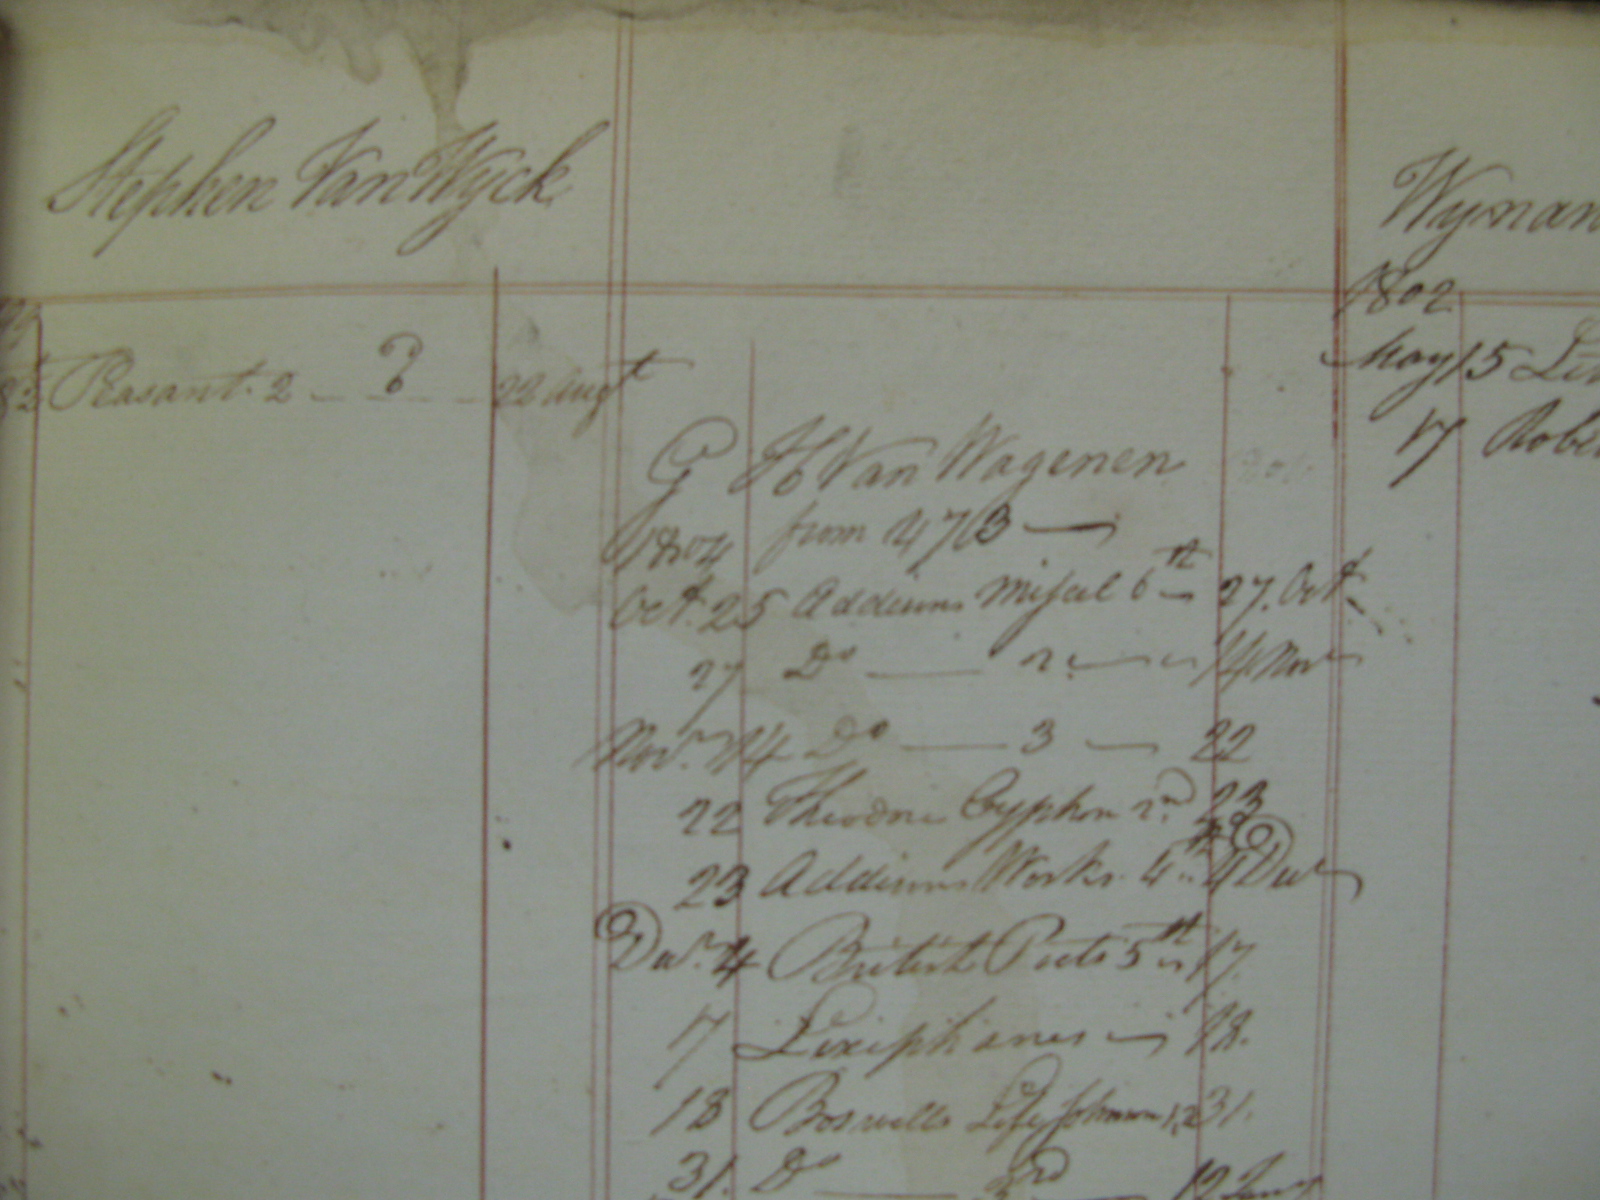 Stephen Van Wyck
Peasant. 2 — — 22 Augt
G H Van Wagenen
1804 from 473 —
Oct. 25 Addisons Miscel 6th — 27. Oct
27 Do — 2 — 14 Nov
Nov. 14 Do — 3 — 22
22 Theodore Cyphon 2d 23
23 Addisons Works. 4th 4 Dec
Decr. 4 British Poets 5th 17.
17 Lexiphanes — 18.
18 Boswells Life Johnson 1,2 31.
31. Do — 3rd — 12 Jany
Wyman
1802
May 15
17 Robe